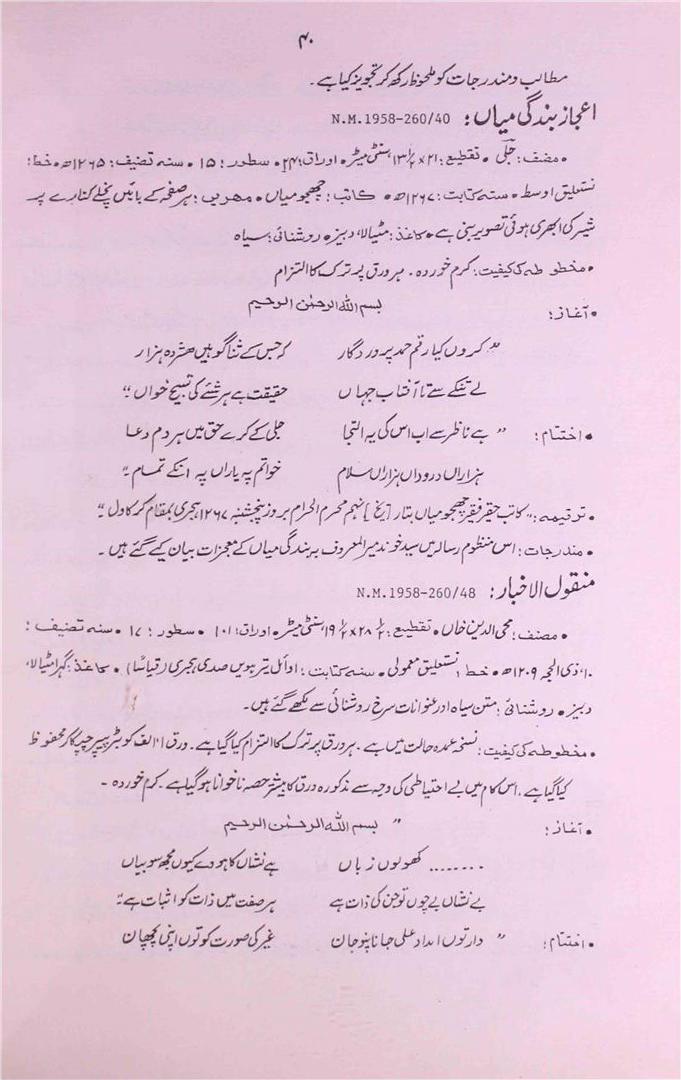 ۴۰
مطالب و مندرجات کو ملحوظ رکھ کر تجویز کیا ہے۔
اعجاز بندگی میاں: N.M.1958-260/40
• مصنف: جلی • تقطیع: ۲۱ × ۱۳½ سنٹی میٹر • اوراق: ۲۴ • سطور: ۱۵ • سنہ تصنیف: ۱۲۶۵ھ • خط:
نستعلیق اوسط • سنہ کتابت: ۱۲۶۷ھ • کاتب: چھجو میاں • مہریں: ہر صفحہ کے بائیں نچلے کنارے پر
شیر کی ابھری ہوئی تصویر بنی ہے • کاغذ: مٹیالا، دبیز • روشنائی: سیاہ
• مخطوطہ کی کیفیت: کرم خوردہ۔ ہر ورق پر ترک کا التزام
• آغاز: بسم اللہ الرحمٰن الرحیم
"کروں کیا رقم حمد پروردگار کہ جس کے ثنا گو ہیں ہشردہ ہزار
لے تنکے سے تا آفتاب جہاں حقیقت ہے ہر شئے کی تسبیح خواں"
• اختتام: "ہے ناظر سے اب اس کی یہ التجا جلی کے کرے حق میں ہر دم دعا
ہزاراں دروداں ہزاراں سلام خواتم پہ یاراں پہ انکے تمام۔"
• ترقیمہ: "کاتب حقیر فقیر چھجو میاں بتار [یخ] نہم محرم الحرام بروز پنجشنبہ ۱۲۶۷ ہجری بمقام کرکاول"
• مندرجات: اس منظوم رسالہ میں سید خوندمیر المعروف بہ بندگی میاں کے معجزات بیان کیے گئے ہیں۔
منقول الاخبار: N.M.1958-260/48
• مصنف: محی الدین خاں • تقطیع: ۲۸½ × ۱۹½ سنٹی میٹر • اوراق: ۱۰۱ • سطور: ۱۷ • سنہ تصنیف:
۱۰ ذی الحجہ ۱۲۰۹ھ • خط: نستعلیق معمولی • سنہ کتابت: اوائل تیرہویں صدی ہجری (قیاساً) • کاغذ: گہرا مٹیالا،
دبیز • روشنائی: متن سیاہ اور عنوانات سرخ روشنائی سے لکھے گئے ہیں۔
• مخطوطہ کی کیفیت: نسخہ عمدہ حالت میں ہے۔ ہر ورق پر ترک کا التزام کیا گیا ہے۔ ورق ۱۔الف کو بٹر پیپر چپکا کر محفوظ
کیا گیا ہے۔ اس کام میں بے احتیاطی کی وجہ سے مذکورہ ورق کا بیشتر حصہ ناخوانا ہو گیا ہے۔ کرم خوردہ۔
• آغاز: " بسم اللہ الرحمٰن الرحیم
........ کھولوں زباں بے نشاں کا ہووے کیوں مجھ سو بیاں
بے نشاں بے چوں توجن کی ذات ہے ہر صفت میں ذات کو اثبات ہے"
• اختتام: "دارتوں امداد علی جاناپنو جان غیر کی صورت کو توں اپنی پچھان